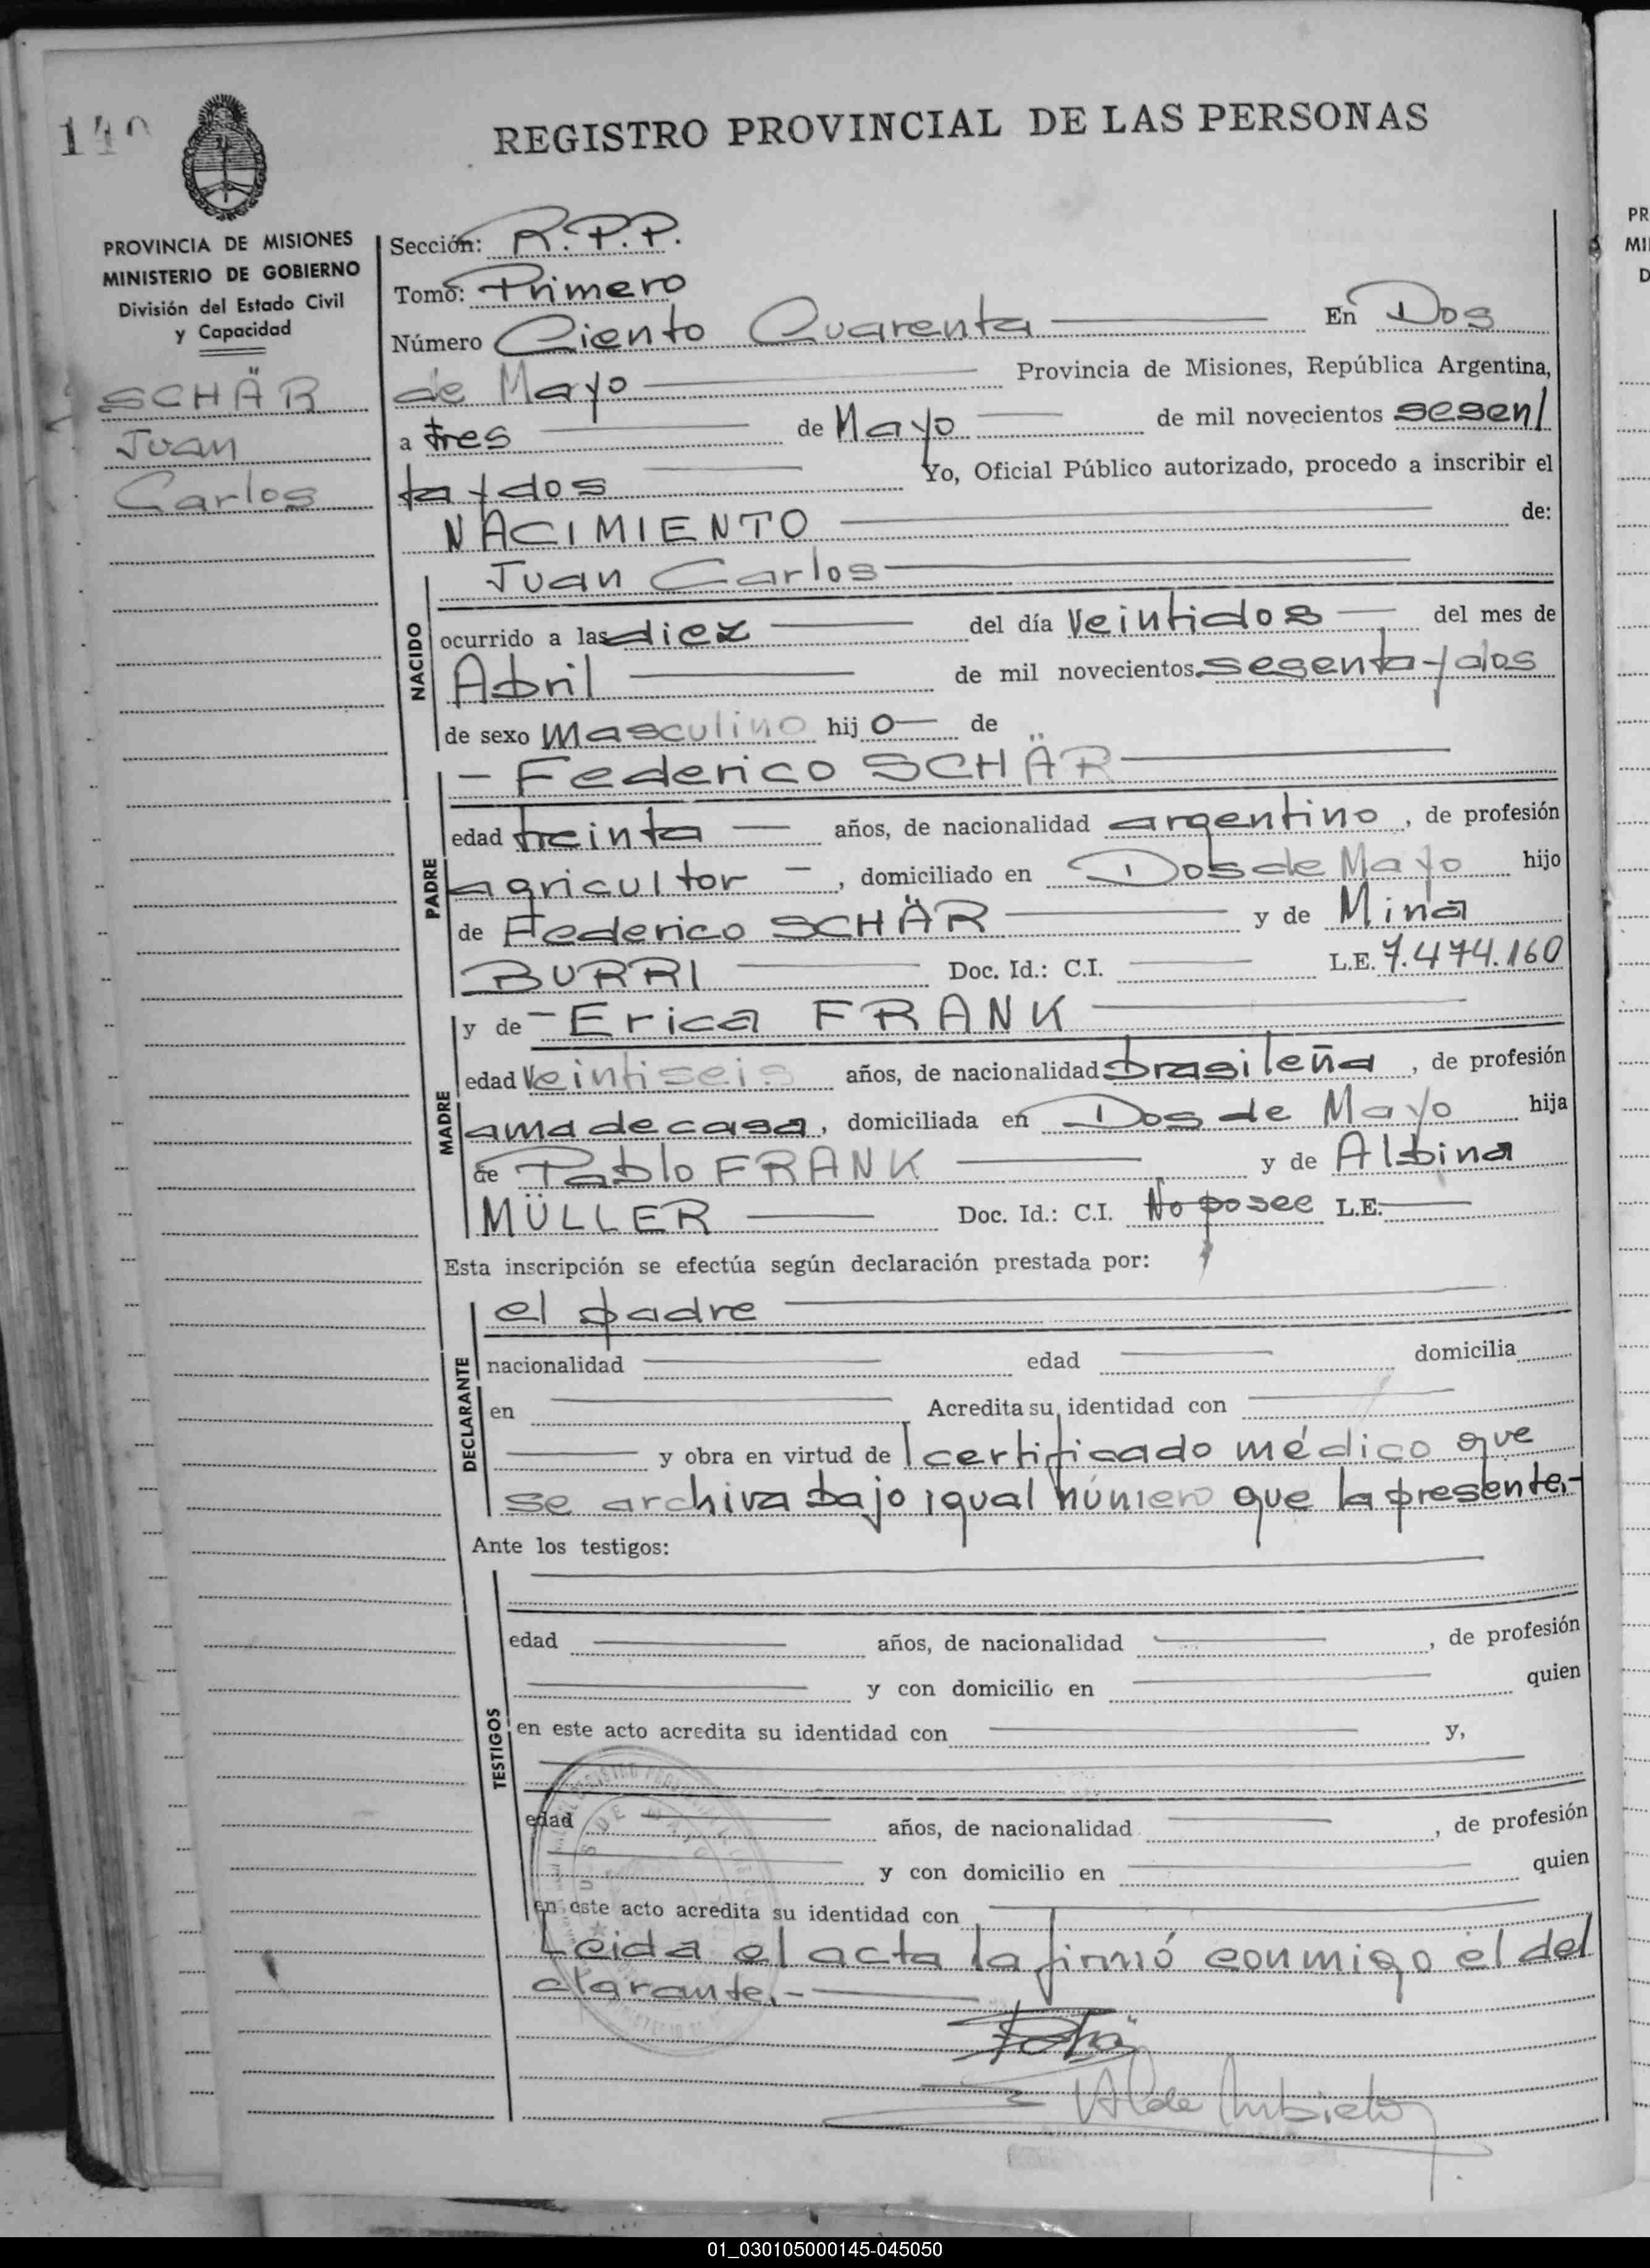 140
REGISTRO PROVINCIAL DE LAS PERSONAS
PROVINCIA DE MISIONES
MINISTERIO DE GOBIERNO
División del Estado Civil
y Capacidad
SCHÄR
Juan
Carlos
Sección: R.P.P.
Tomo: Primero
Número Ciento Cuarenta En Dos
de Mayo Provincia de Misiones, República Argentina,
a tres de Mayo de mil novecientos sesen/
ta y dos Yo, Oficial Público autorizado, procedo a inscribir el
NACIMIENTO de:
NACIDO
Juan Carlos
ocurrido a las diez del día veintidos del mes de
Abril de mil novecientos sesenta y dos
de sexo masculino hijo de
PADRE
- Federico SCHÄR
edad treinta años, de nacionalidad argentino, de profesión
agricultor -, domiciliado en Dos de Mayo hijo
de Federico SCHÄR y de Mina
BURRI Doc. Id.: C.I. L.E. 7.474.160
MADRE
y de - Erica FRANK
edad veintiseis años, de nacionalidad brasileña, de profesión
ama de casa, domiciliada en Dos de Mayo hija
de Pablo FRANK y de Albina
MÜLLER Doc. Id.: C.I. No posee L.E.
Esta inscripción se efectúa según declaración prestada por:
DECLARANTE
el padre
nacionalidad edad domicilia
en Acredita su identidad con
y obra en virtud de l certificado médico que
se archiva bajo igual número que la presente.-
Ante los testigos:
TESTIGOS
edad años, de nacionalidad , de profesión
y con domicilio en quien
en este acto acredita su identidad con y,
edad años, de nacionalidad , de profesión
y con domicilio en quien
en este acto acredita su identidad con
Leida el acta la firmó conmigo el del
clarante.-
01_030105000145-045050